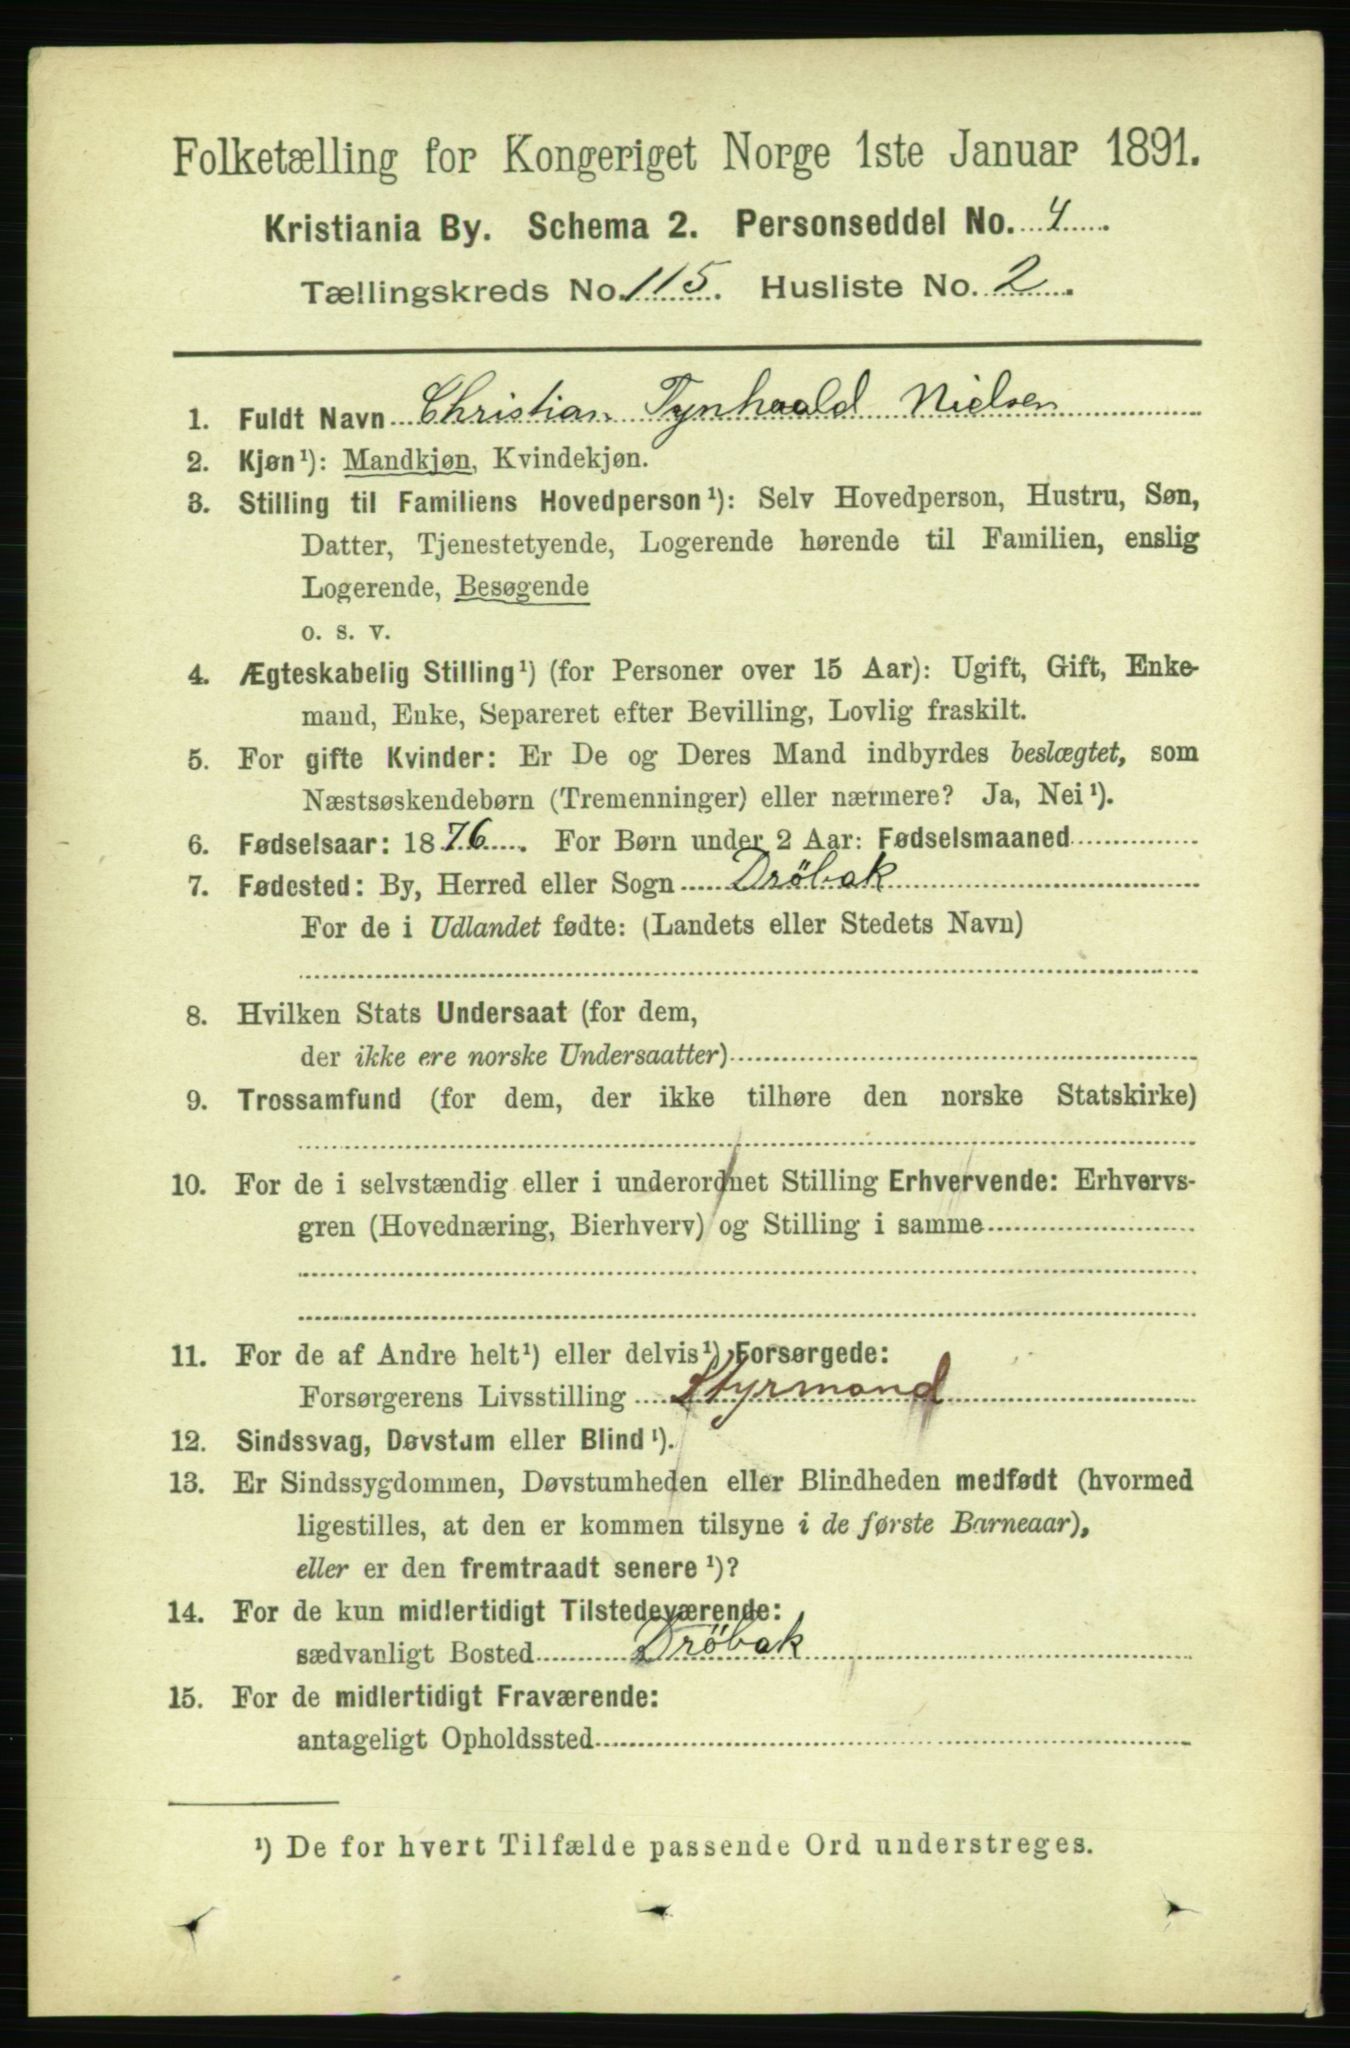 Folketælling for Kongeriget Norge 1ste Januar 1891.
Kristiania By. Schema 2. Personseddel No. 4
Tællingskreds No. 115. Husliste No. 2.
1. Fuldt Navn Christian Tynhaald Nielsen
2. Kjøn¹): Mandkjøn, Kvindekjøn.
3. Stilling til Familiens Hovedperson¹): Selv Hovedperson, Hustru, Søn,
Datter, Tjenestetyende, Logerende hørende til Familien, enslig
Logerende, Besøgende
o. s. v.
4. Ægteskabelig Stilling¹) (for Personer over 15 Aar): Ugift, Gift, Enke-
mand, Enke, Separeret efter Bevilling, Lovlig fraskilt.
5. For gifte Kvinder: Er De og Deres Mand indbyrdes beslægtet, som
Næstsøskendebørn (Tremenninger) eller nærmere? Ja, Nei¹).
6. Fødselsaar: 1876. For Børn under 2 Aar: Fødselsmaaned
7. Fødested: By, Herred eller Sogn Dröbak
For de i Udlandet fødte: (Landets eller Stedets Navn)
8. Hvilken Stats Undersaat (for dem,
der ikke ere norske Undersaatter)
9. Trossamfund (for dem, der ikke tilhøre den norske Statskirke)
10. For de i selvstændig eller i underordnet Stilling Erhvervende: Erhvervs-
gren (Hovednæring, Bierhverv) og Stilling i samme
11. For de af Andre helt¹) eller delvis¹) Forsørgede:
Forsørgerens Livsstilling Styrmand
12. Sindssvag, Døvstum eller Blind¹).
13. Er Sindssygdommen, Døvstumheden eller Blindheden medfødt (hvormed
ligestilles, at den er kommen tilsyne i de første Barneaar),
eller er den fremtraadt senere¹)?
14. For de kun midlertidigt Tilstedeværende:
sædvanligt Bosted Dröbak
15. For de midlertidigt Fraværende:
antageligt Opholdssted
¹) De for hvert Tilfælde passende Ord understreges.